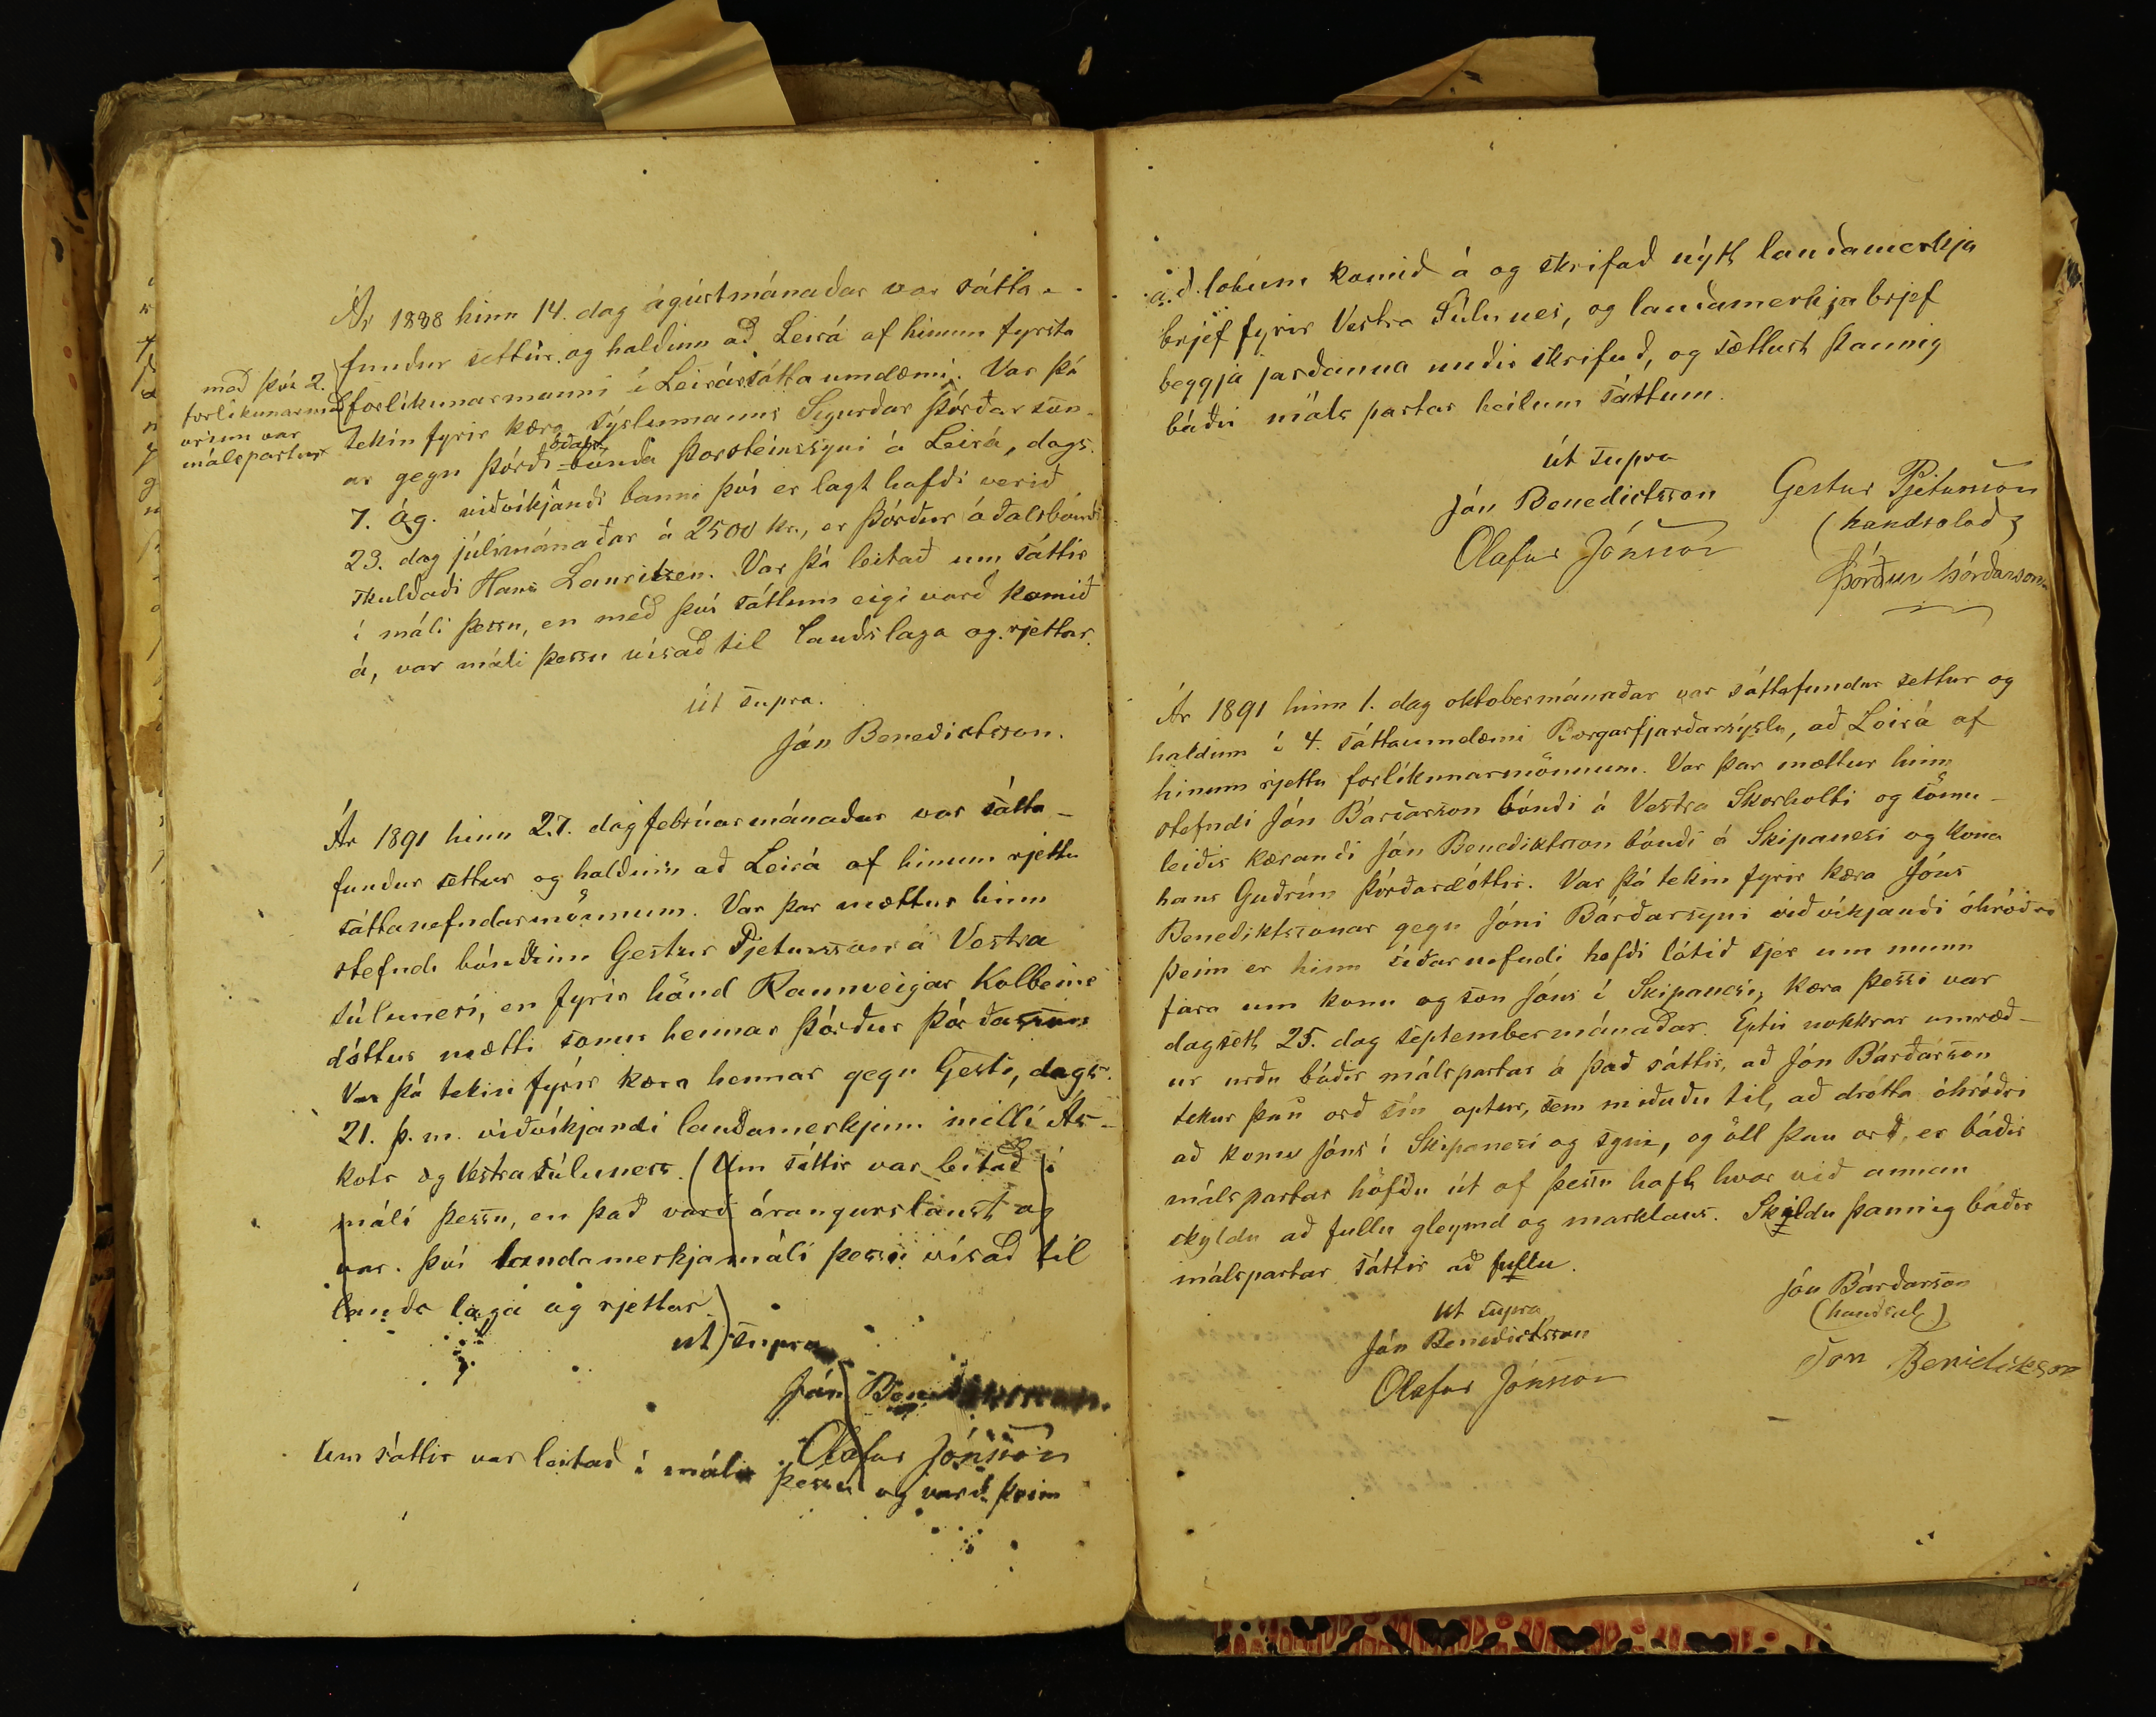 Ár 1888 hinn 14. dag ágústmánaðar var sátta-
fundur settur og haldinn að Leirá af hinum fyrsta
með því 2.
forlíkunarmað
urinn var
málspartur
forlíkunarmanni í Leirársáttaumdæmi. Var þá
tekin fyrir kæra sýslumanns Sigurðar Þórðarson-
ar gegn Þórði óðals-bónda Þorsteinssyni á Leirá, dags.
7. Ág. viðvíkjandi banni því er lagt hafði verið
23. dag júlímánaðar á 2500 kr., er Þórður óðalsbóndi
skuldaði Hans Lauritzen. Var þá leitað um sáttir
í máli þessu, en með því sáttum eigi varð komið
á, var máli þessu vísað til landslaga og rjettar.
Út supra.
Jón Benedictsson.
Ár 1891 hinn 27. dag febrúarmánaðar var sátta-
fundur settur og haldinn að Leirá af hinum rjettu
sáttanefndarmönnum. Var þar mættur hinn
stefndi bóndinn Gestur Pjetursson á Vestra
súlunesi, en fyrir hönd Rannveigar Kolbeins
dóttur mætti sonur hennar Þórður Þórðarson
Var þá tekin fyrir kæra hennar gegn Gesti, dags.
21. þ. m. viðvíkjandi landamerkjum milli Ás-
kots og Vestrasúluness. (Um sáttir var leitað í
máli þessu, en það varð árangurslaust og
var því landamerkjamáli þessu vísað til
lands laga og rjettar)
ut supra
Jón Benedictsson.
Olafur Jónsson
Um sáttir var leitað í máli þessu og varð þeim
að lokum komið á og skrifað nýtt landamerkja
brjef fyrir Vestra Súlunes, og landamerkjabrjef
beggja jarðanna undir skrifuð, og sættust þannig
báðir máls partar heilum sáttum.
út supra
Jón Benedictsson
Gestur Pjetursson
(handsalað)
Olafur Jónsson
Þórður Þórðarson
Ár 1891 hinn 1. dag oktobermánaðar var sáttafundur settur og
haldinn í 4. sáttaumdæmi Borgarfjarðarsýslu, að Leirá af
hinum rjettu forlíkunarmönnum. Var þar mættur hinn
stefndi Jón Bárðarson bóndi á Vestra Skorholti og sömu-
leiðis kærandi Jón Benediktsson bóndi á Skipanesi og kona
hans Guðrún Þórðardóttir. Var þá tekin fyrir kæra Jóns
Benediktssonar gegn Jóni Bárðarsyni viðvíkjandi óhróðri
þeim er hinn síðarnefndi hafði látið sjer um munn
fara um konu og son Jóns í Skipanesi, kæra þessi var
dagsett 25. dag septembermánaðar. Eptir nokkrar umræð-
ur urðu báðir málspartar á það sáttir, að Jón Bárðarson
tekur þau orð sín aptur, sem miðuðu til, að drótta óhróðri
að konu Jóns í Skipanesi og syni, og öll þau orð, er báðir
málspartar höfðu út af þessu haft hvor við annan
skyldu að fullu gleymd og marklaus. Skildu þannig báðir
málspartar sáttir að fullu.
ut supra
Jón Benedictsson
Jón Bárðarson
(handsal)
Olafur Jónsson
Jon Benidiktsson